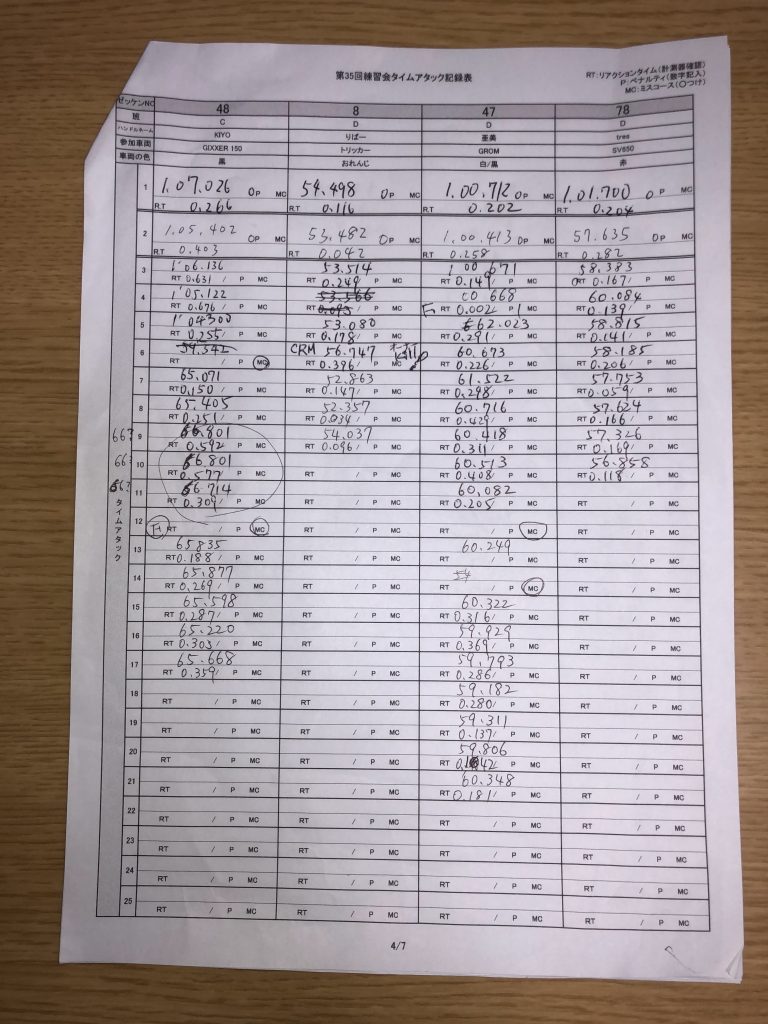 第35回練習会タイムアタック記録表
RT:リアクションタイム(計測器確認)
P:ペナルティ(数字記入)
MC:ミスコース(○つけ)
ゼッケンNO 48 8 47 78
班 C D D D
ハンドルネーム KIYO りばー 亜美 tres
参加車両 GIXXER 150 トリッカー GROM SV650
車両の色 黒 おれんじ 白/黒 赤
タイムアタック
1 1.07.026 0P MC 54.498 0P MC 1.00.712 0P MC 1.01.700 0P MC
RT 0.266 RT 0.116 RT 0.202 RT 0.204
2 1.05.402 0P MC 53.482 0P MC 1.00.413 0P MC 57.635 0P MC
RT 0.403 RT 0.042 RT 0.258 RT 0.282
3 1'06.136 53.514 1 00 671 58.383
RT 0.631 / P MC RT 0.249 / P MC RT 0.149 / P MC RT 0.167 / P MC
4 1'05.122 53.566 60 668 60.084
RT 0.676 / P MC RT 0.093 / P MC F RT 0.002 / P 1 MC RT 0.139 / P MC
5 1'04300 53.080 62.023 58.815
RT 0.255 / P MC RT 0.178 / P MC RT 0.291 / P MC RT 0.141 / P MC
6 54.342 CRM 56.747 60.673 58.185
RT / P MC RT 0.396 / P MC RT 0.226 / P MC RT 0.206 / P MC
7 65.071 52.863 61.522 57.753
RT 0.150 / P MC RT 0.147 / P MC RT 0.298 / P MC RT 0.059 / P MC
8 65.405 52.357 60.716 57.624
RT 0.251 / P MC RT 0.034 / P MC RT 0.429 / P MC RT 0.166 / P MC
667 9 66.801 54.037 60.418 57.326
RT 0.592 / P MC RT 0.096 / P MC RT 0.311 / P MC RT 0.169 / P MC
663 10 66.801 60.513 56.858
RT 0.577 / P MC RT / P MC RT 0.408 / P MC RT 0.118 / P MC
11 66.714 60.082
RT 0.309 / P MC RT / P MC RT 0.205 / P MC RT / P MC
12
RT / P MC RT / P MC RT / P MC RT / P MC
13 65.835 60.249
RT 0.188 / P MC RT / P MC RT / P MC RT / P MC
14 65.877
RT 0.269 / P MC RT / P MC RT / P MC RT / P MC
15 65.598 60.322
RT 0.287 / P MC RT / P MC RT 0.316 / P MC RT / P MC
16 65.220 59.929
RT 0.303 / P MC RT / P MC RT 0.369 / P MC RT / P MC
17 65.668 59.793
RT 0.359 / P MC RT / P MC RT 0.286 / P MC RT / P MC
18 59.182
RT / P MC RT / P MC RT 0.280 / P MC RT / P MC
19 59.311
RT / P MC RT / P MC RT 0.137 / P MC RT / P MC
20 59.806
RT / P MC RT / P MC RT / P MC RT / P MC
21 60.348
RT / P MC RT / P MC RT 0.181 / P MC RT / P MC
22
RT / P MC RT / P MC RT / P MC RT / P MC
23
RT / P MC RT / P MC RT / P MC RT / P MC
24
RT / P MC RT / P MC RT / P MC RT / P MC
25
RT / P MC RT / P MC RT / P MC RT / P MC
4/7